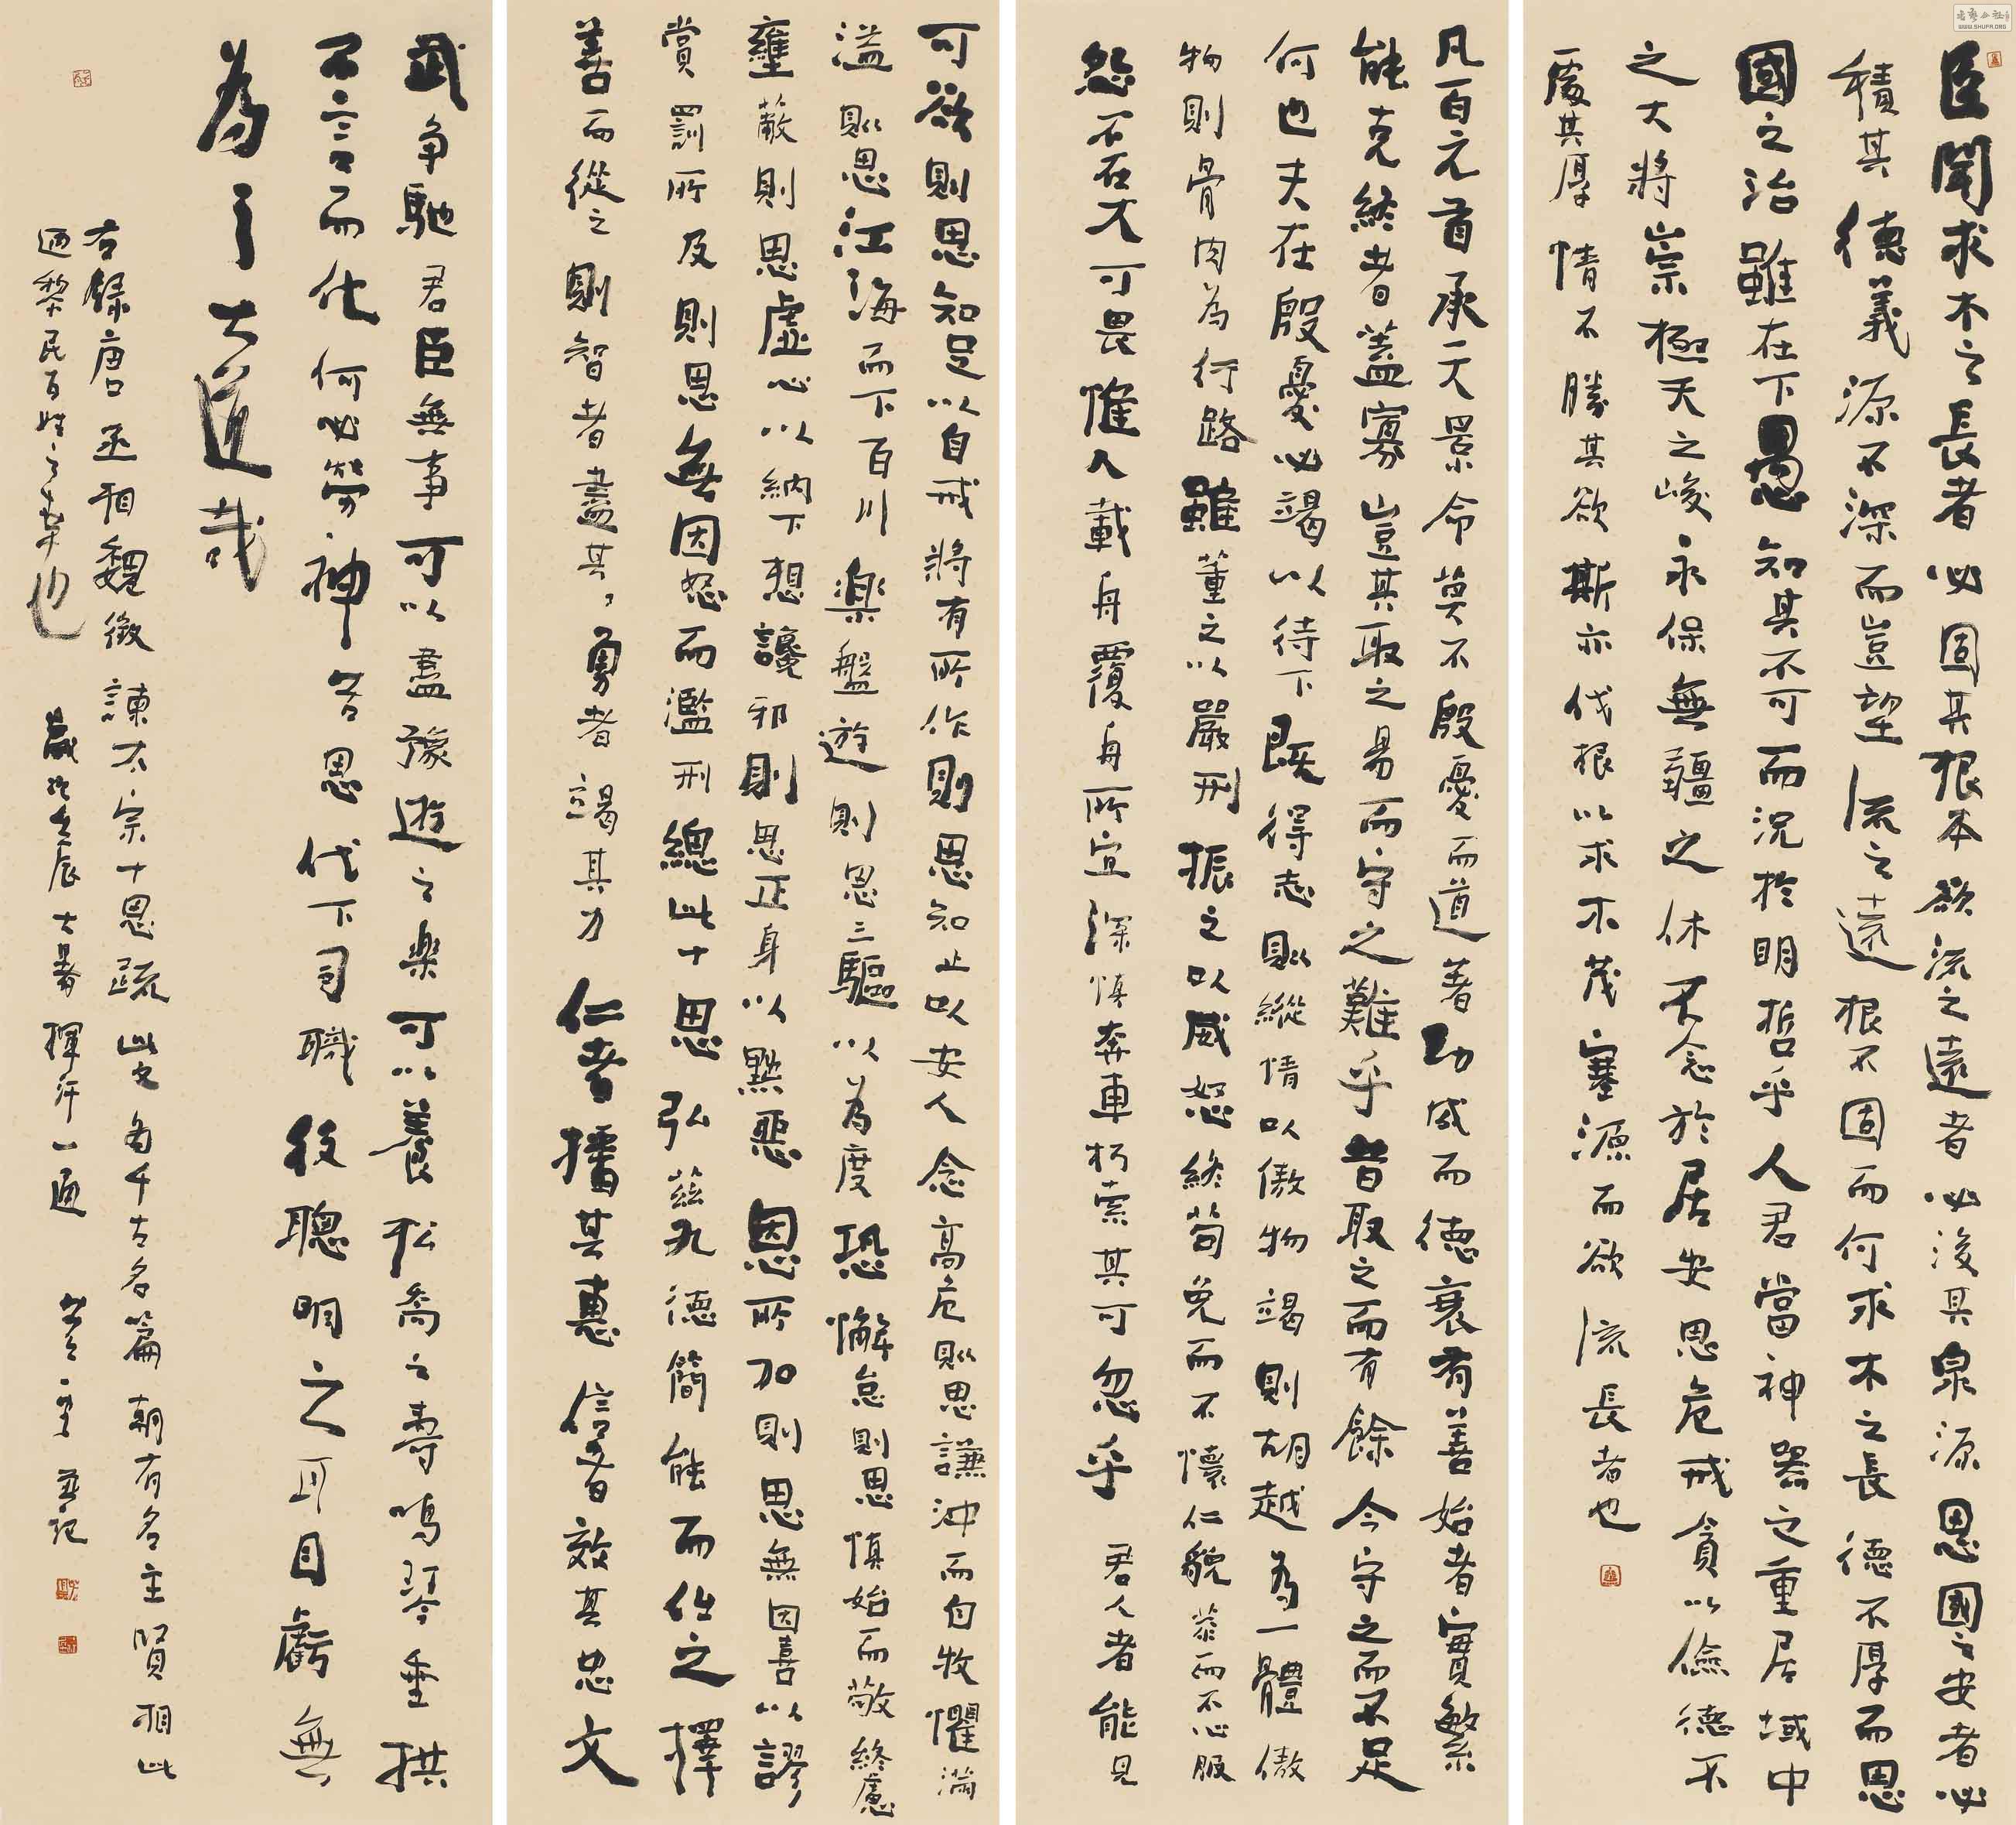 臣聞求木之長者必固其根本欲流之遠者必浚其泉源思國之安者必
積其德義源不深而豈望流之遠根不固而何求木之長德不厚而思
國之治雖在下愚知其不可而況於明哲乎人君當神器之重居域中
之大將崇極天之峻永保無疆之休不念於居安思危戒貪以儉德不
處其厚情不勝其欲斯亦伐根以求木茂塞源而欲流長者也
凡百元首承天景命莫不殷憂而道著功成而德衰有善始者實繁
能克終者蓋寡豈其取之易而守之難乎昔取之而有餘今守之而不足
何也夫在殷憂必竭以待下既得志則縱情以傲物竭則胡越為一體傲
物則骨肉為行路雖董之以嚴刑振之以威怒終苟免而不懷仁貌恭而不心服
怨不在大可畏惟人載舟覆舟所宜深慎奔車朽索其可忽乎君人者能見
可欲則思知足以自戒將有所作則思知止以安人念高危則思謙沖而自牧懼滿
溢則思江海而下百川樂盤遊則思三驅以為度恐懈怠則思慎始而敬終慮
壅蔽則思虛心以納下想讒邪則思正身以黜惡恩所加則思無因喜以謬
賞罰所及則思無因怒而濫刑總此十思弘茲九德簡能而任之擇
善而從之則智者盡其勇者竭其力仁者播其惠信者效其忠文
武爭馳君臣無事可以盡豫遊之樂可以養松喬之壽鳴琴垂拱
不言而化何必勞神苦思代下司職役聰明之耳目虧無
為之大道哉
右錄唐丞相魏徵諫太宗十思疏此文為千古名篇朝有名主賢相此
迺黎民百姓之幸也歲次壬辰大暑揮汗一通並記
WWW.SHUFA.ORG